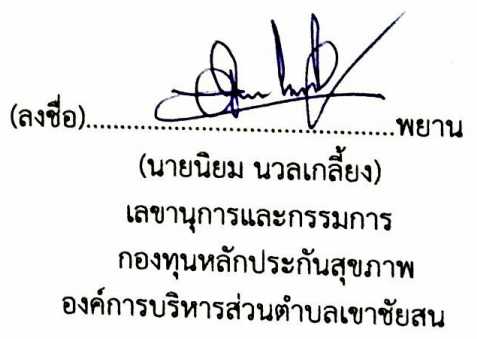 (ลงชื่อ)..........................................พยาน
(นายนิยม นวลเกลี้ยง)
เลขานุการและกรรมการ
กองทุนหลักประกันสุขภาพ
องค์การบริหารส่วนตำบลเขาชัยสน